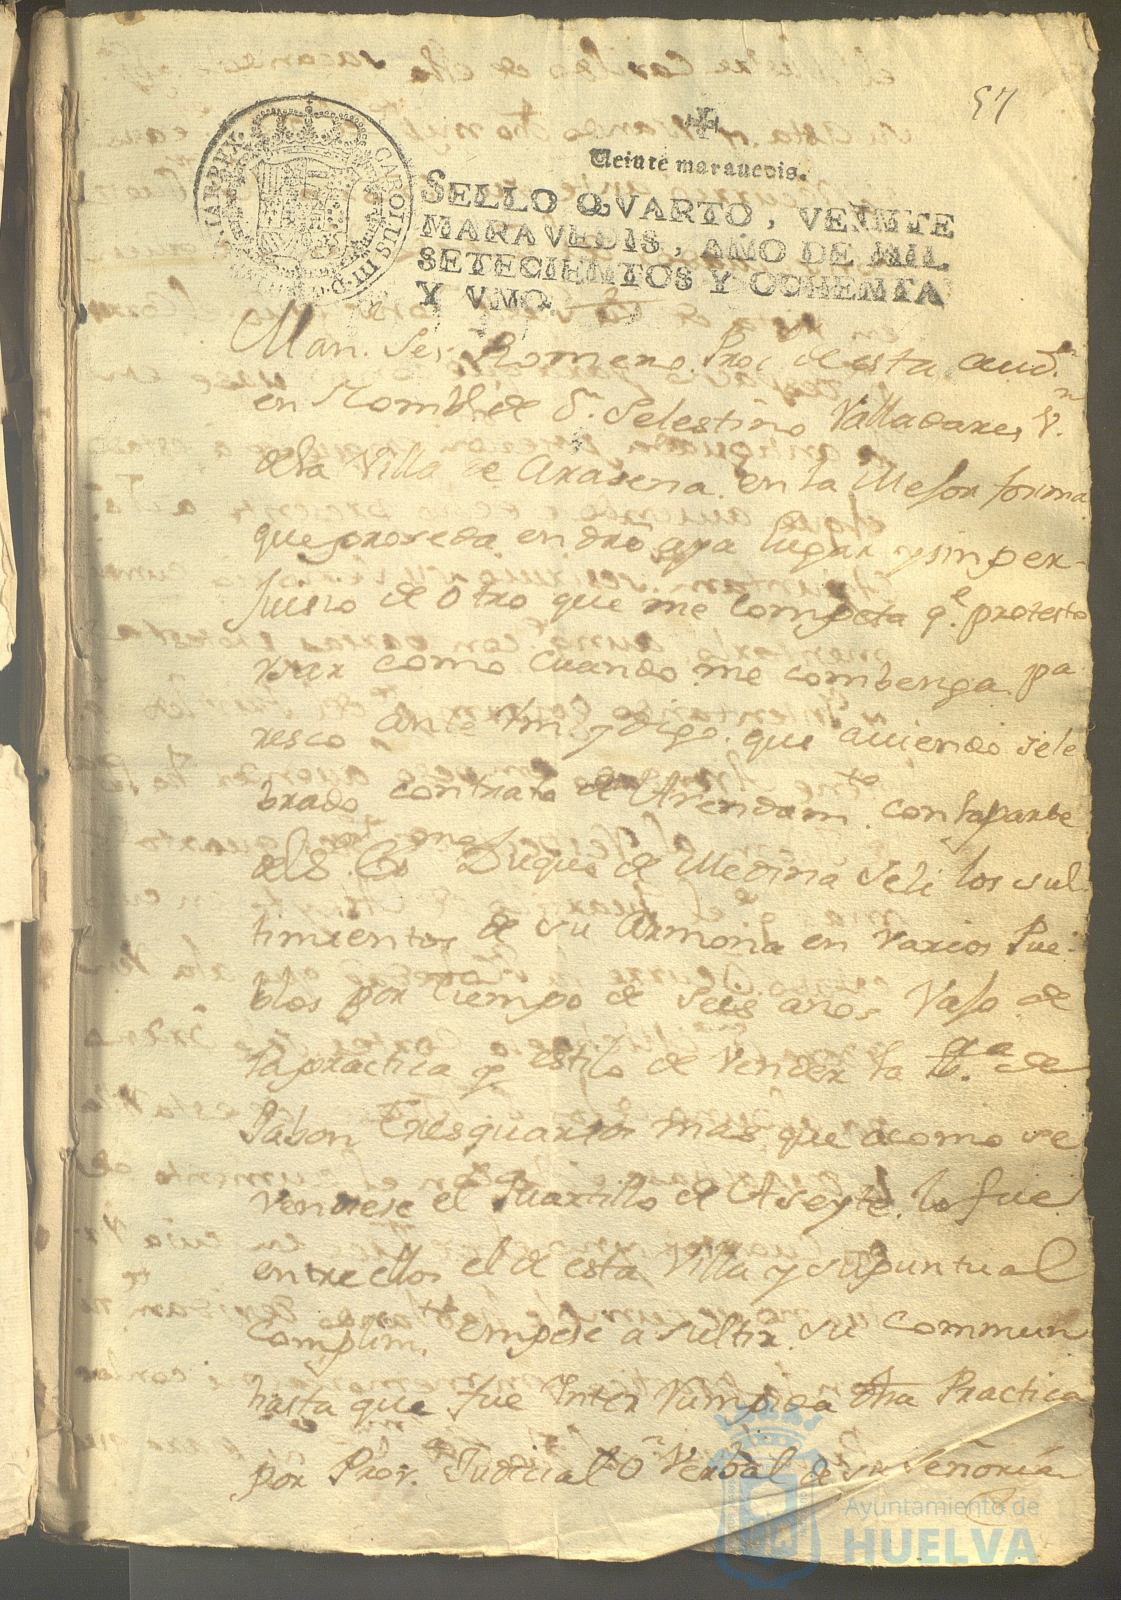 57
Veinte maravedis.
SELLO QVARTO, VEINTE
MARAVEDIS, AÑO DE MIL
SETECIENTOS Y OCHENTA
Y VNO.
CAROLUS III D.G.
Man. Romero Pror. de esta aud.n
en Nombre de D.n Selestino Valladares V.n
de la Villa de Arasena en la Mejor forma
que proseda en dro aya lugar y sin per-
juisio de Otro que me Competa q.e protesto
usar como Cuando me combenga pa
resco ante Vm y digo que auiendo sele
brado contrato de Arendam.to con la parte
del S. Duque de Medina Seli los sul
timientos de su Armona en Varios Pue-
blos por tiempo de seis años Vajo de
la practica y estilo de Vender la lb.a de
Jabon Tres quartos mas que acomo se
Vendiese el Quartillo de Aseyte, lo fue
entre ellos el de esta Villa y su puntual
Complim.to empese a sultir su Commun
hasta que fue Inter Rumpida dha Practica
por Prov.a Judicial o Verbal de su Señoria
Ayuntamiento de
HUELVA